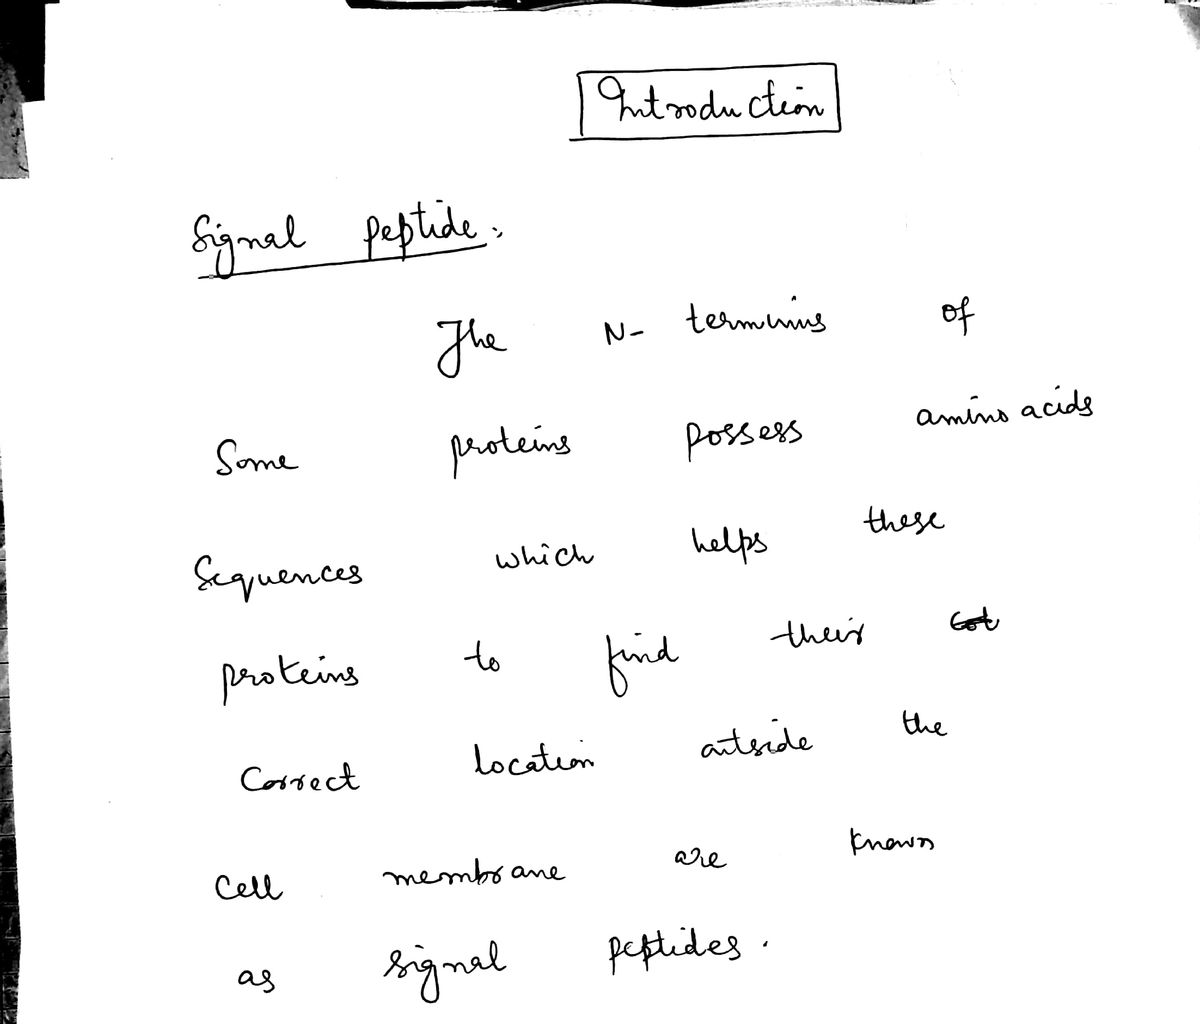 Introduction
Signal peptide:
The N- terminus of
Some proteins possess amino acids
Sequences which helps these
proteins to find their
Correct location outside the
Cell membrane are known
as signal peptides.